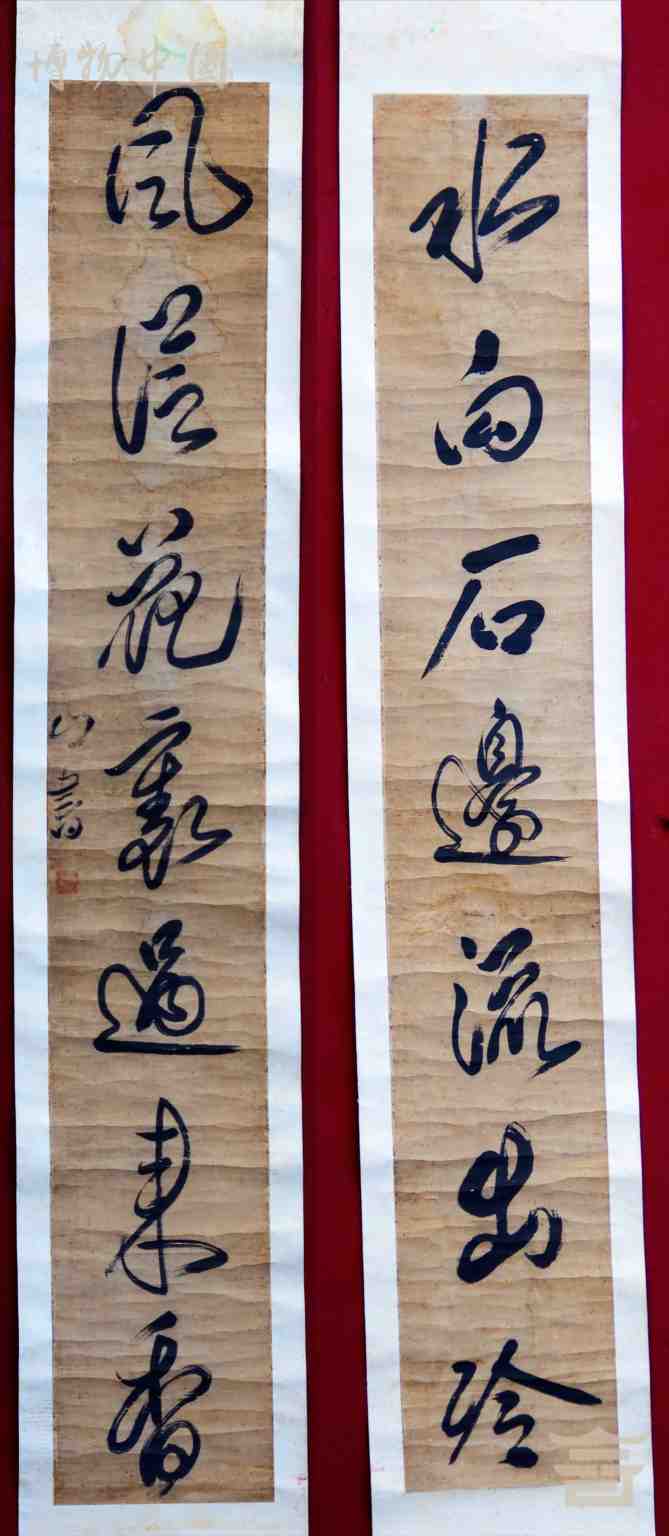 水向石邊流出冷
風從花裏過來香
山書
博物中國